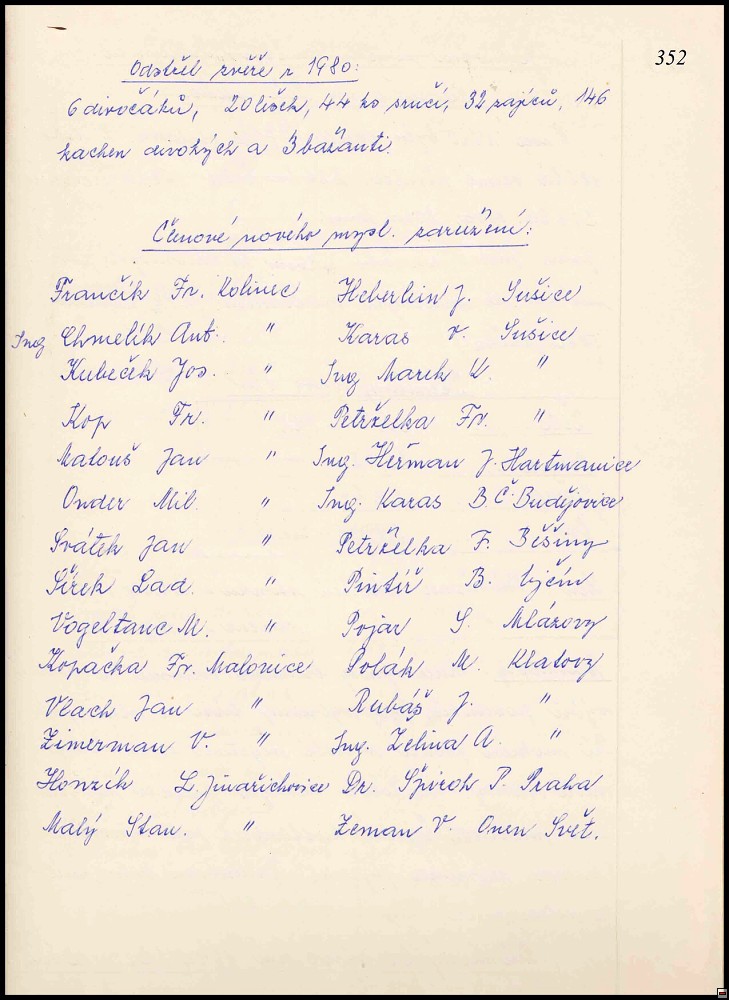 352
Odstřel zvěře r 1980:
6 divočáků, 20 lišek, 44 ks srnčí, 32 zajíců, 146
kachen divokých a 3 bažanti.
Členové nového mysl. združení:
Frančík Fr. Kolinec Heberlein J. Sušice
Ing Chmelík Ant. " Karas V. Sušice
Kubeček Jos. " Ing Marek K. "
Kop Fr. " Petrželka Fr. "
Matouš Jan " Ing. Heřman J. Hartmanice
Onder Mil. " Ing. Karas B. Č. Budějovice
Svátek Jan " Petrželka F. Běšiny
Šírek Lad. " Pintíř B. Ujčín
Vogeltanc M. " Pojar S. Mlázovy
Kopačka Fr. Malonice Polák M. Klatovy
Vlach Jan " Rubáš J. "
Zimerman V. " Ing. Zelina A. "
Honzík L. Jindřichovice Dr. Špiroch P. Praha
Malý Stan. " Zeman V. Onen Svět.